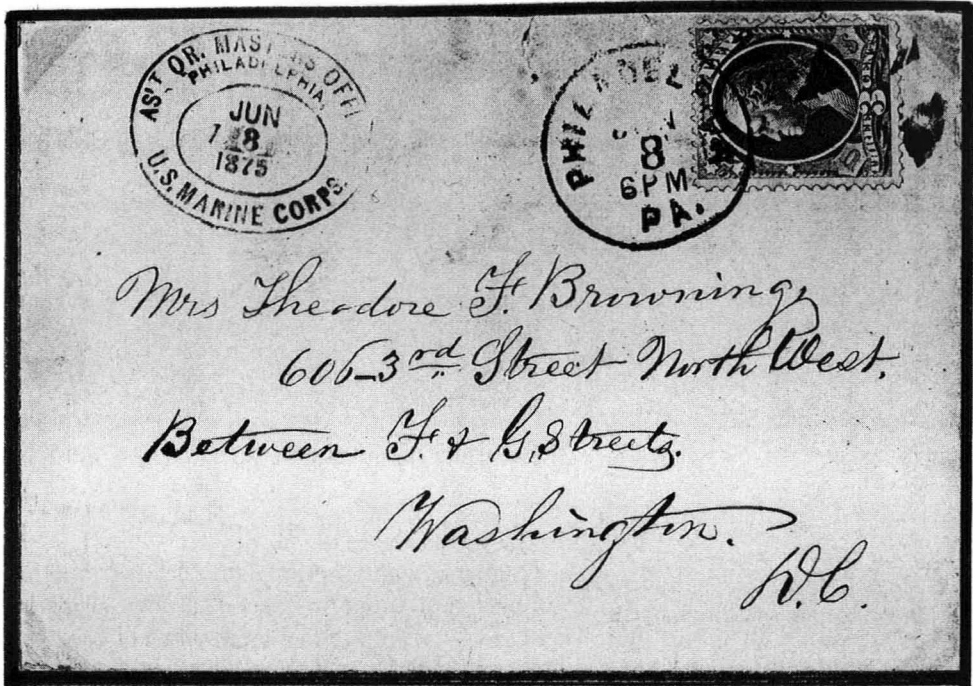 AS'T QR. MAST RS OFFI
PHILADELPHIA,
JUN
8
1875
U.S. MARINE CORPS.
PHILADEL
8
6PM
PA.
Mrs Theodore F. Browning,
606_3rd Street North West.
Between F. & G, Streets.
Washington.
D.C.